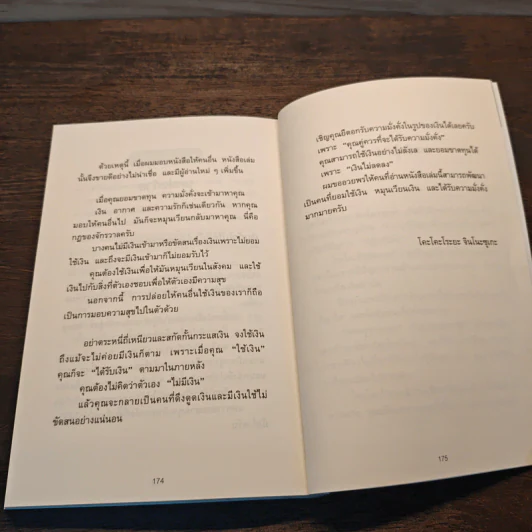 ด้วยเหตุนี้ เมื่อผมมอบหนังสือให้คนอื่น หนังสือเล่ม
นั้นจึงขายดีอย่างไม่น่าเชื่อ และมีผู้อ่านใหม่ ๆ เพิ่มขึ้น
เมื่อคุณยอมขาดทุน ความมั่งคั่งจะเข้ามาหาคุณ
เงิน อากาศ และความรักก็เช่นเดียวกัน หากคุณ
มอบให้คนอื่นไป มันก็จะหมุนเวียนกลับมาหาคุณ นี่คือ
กฎของจักรวาลครับ
บางคนไม่มีเงินเข้ามาหรือขัดสนเรื่องเงินเพราะไม่ยอม
ใช้เงิน และถึงจะมีเงินเข้ามาก็ไม่ยอมรับไว้
คุณต้องใช้เงินเพื่อให้มันหมุนเวียนในสังคม และใช้
เงินไปกับสิ่งที่ตัวเองชอบเพื่อให้ตัวเองมีความสุข
นอกจากนี้ การปล่อยให้คนอื่นใช้เงินของเราก็ถือ
เป็นการมอบความสุขไปในตัวด้วย
อย่าตระหนี่ถี่เหนียวและสกัดกั้นกระแสเงิน จงใช้เงิน
ถึงแม้จะไม่ค่อยมีเงินก็ตาม เพราะเมื่อคุณ “ใช้เงิน”
คุณก็จะ “ได้รับเงิน” ตามมาในภายหลัง
คุณต้องไม่คิดว่าตัวเอง “ไม่มีเงิน”
แล้วคุณจะกลายเป็นคนที่ดึงดูดเงินและมีเงินใช้ไม่
ขัดสนอย่างแน่นอน
174
เชิญคุณยืดอกรับความมั่งคั่งในรูปของเงินได้เลยครับ
เพราะ “คุณคู่ควรที่จะได้รับความมั่งคั่ง”
คุณสามารถใช้เงินอย่างไม่ลังเล และยอมขาดทุนได้
เพราะ “เงินไม่ลดลง”
ผมขออวยพรให้คนที่อ่านหนังสือเล่มนี้สามารถพัฒนา
เป็นคนที่ยอมใช้เงิน หมุนเวียนเงิน และได้รับความมั่งคั่ง
มากมายครับ
โคะโคะโระยะ จินโนะซุเกะ
175